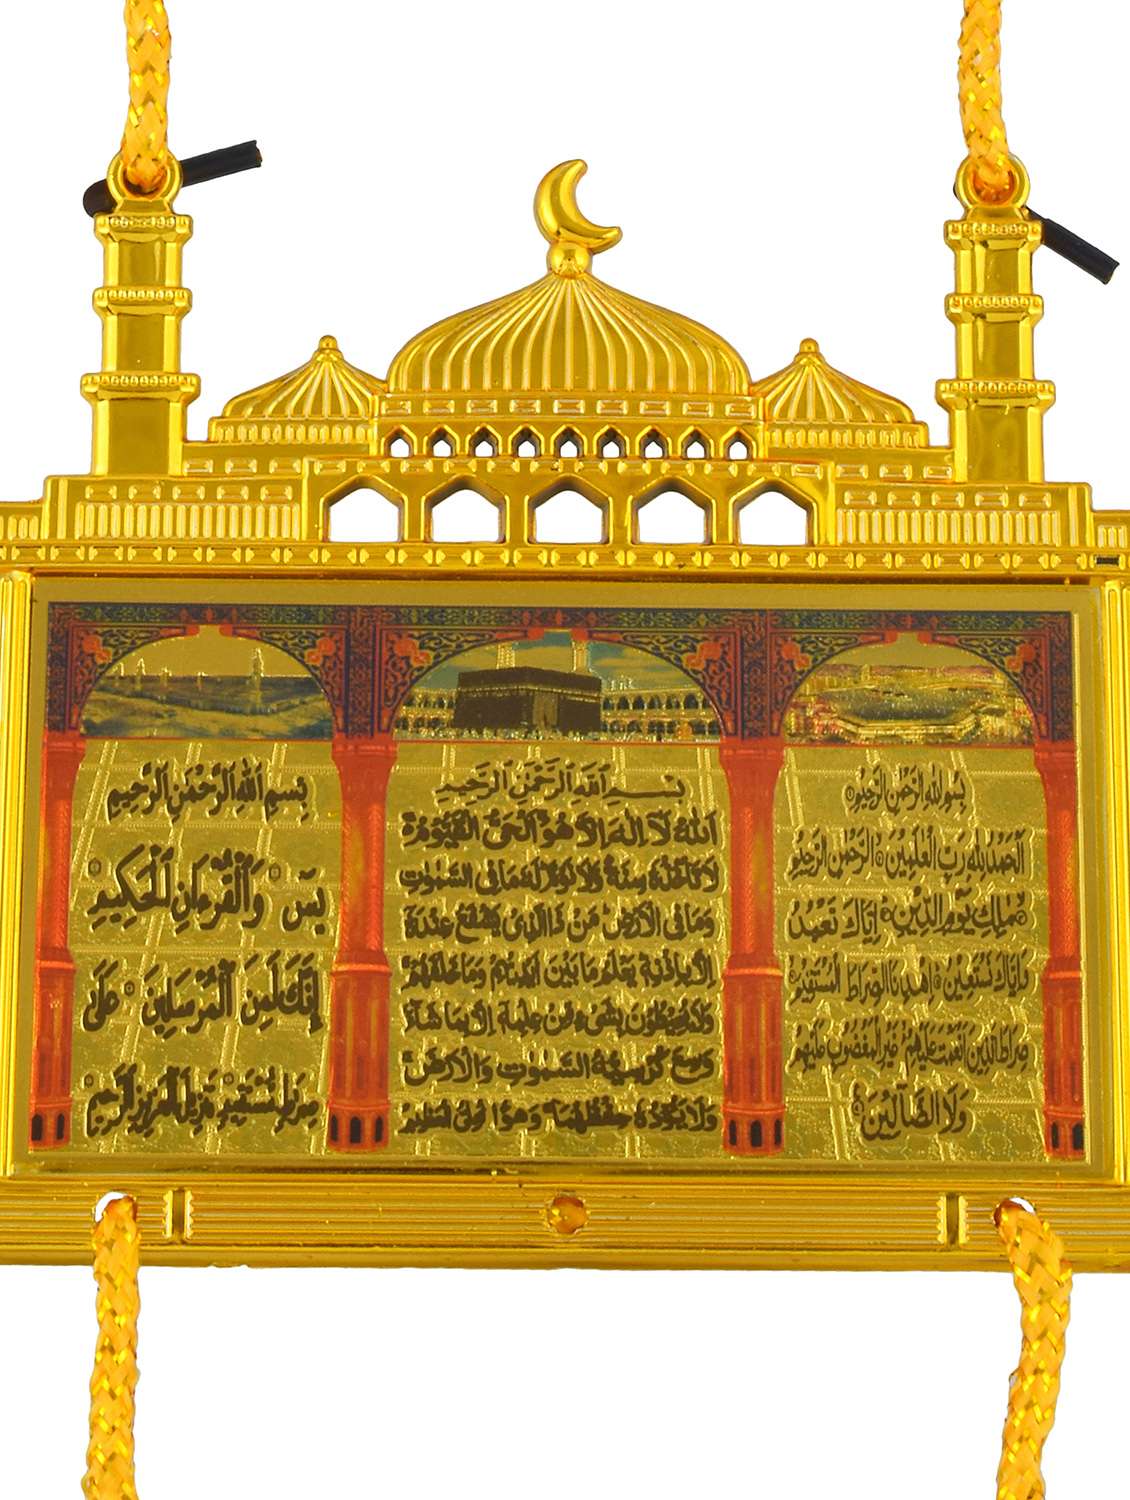 بسم الله الرحمن الرحيم
الحمد لله رب العلمين الرحمن الرحيم
ملك يوم الدين اياك نعبد
واياك نستعين اهدنا الصراط المستقيم
صراط الذين انعمت عليهم غير المغضوب عليهم
ولا الضالين
بسم الله الرحمن الرحيم
الله لا اله الا هو الحي القيوم
لا تاخذه سنة ولا نوم له ما في السموت
وما في الارض من ذا الذي يشفع عنده
الا باذنه يعلم ما بين ايديهم وما خلفهم
ولا يحيطون بشيء من علمه الا بما شاء
وسع كرسيه السموت والارض
ولا يوده حفظهما وهو العلي العظيم
بسم الله الرحمن الرحيم
يس والقرءان الحكيم
انك لمن المرسلين على
صراط مستقيم تنزيل العزيز الرحيم